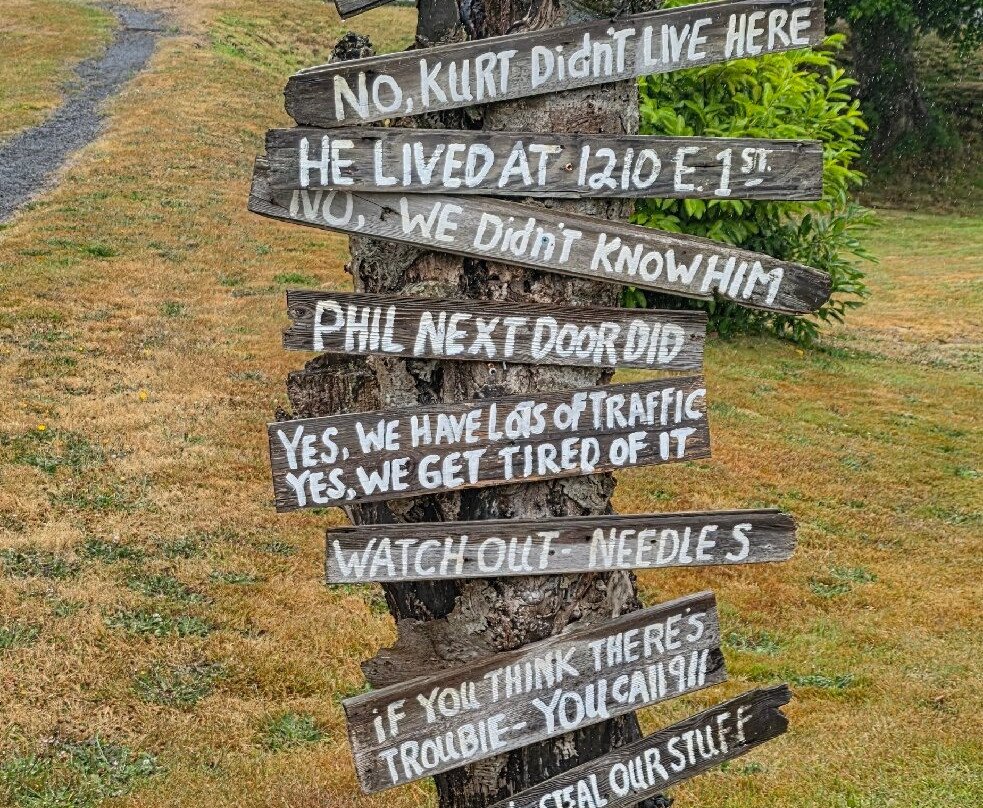 NO, KURT Didn'T LIVE HERE
HE LIVED AT 1210 E. 1ST.
NO, WE Didn'T KNOW HIM
PHIL NEXT DOOR DID
YES, WE HAVE LOTS OF TRAFFIC
YES, WE GET TIRED OF IT
WATCH OUT - NEEDLES
iF YOU THINK THERE'S
TROUBlE - YOU CAll 911
STEAL OUR STUFF